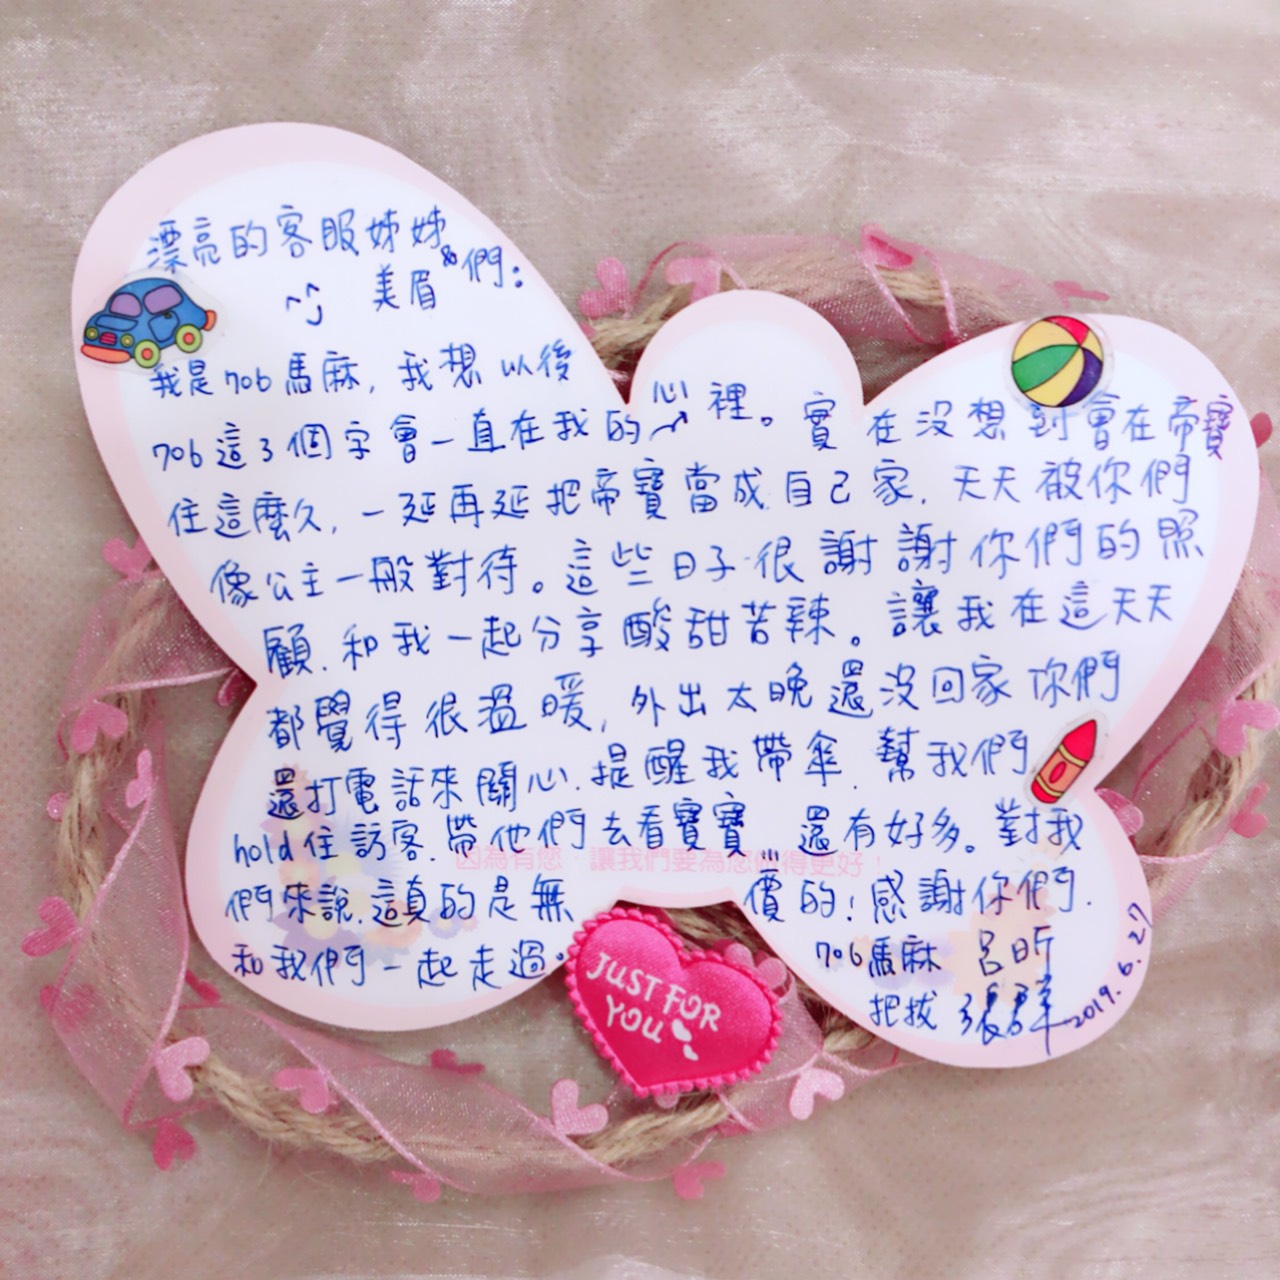 漂亮的客服姊姊&
美眉們:
我是706馬麻, 我想以後
706這3個字會一直在我的心裡。實在沒想到會在帝寶
住這麼久, 一延再延把帝寶當成自己家, 天天被你們
像公主一般對待。這些日子很謝謝你們的照
顧, 和我一起分享酸甜苦辣。讓我在這天天
都覺得很溫暖, 外出太晚還沒回家你們
還打電話來關心, 提醒我帶傘, 幫我們
hold住訪客, 帶他們去看寶寶... 還有好多。對我
因為有您,讓我們要為您做得更好!
們來說, 這真的是無價的! 感謝你們.
和我們一起走過。
706馬麻 呂昕
把拔 張群
2019.6.27
JUST FOR
YOU